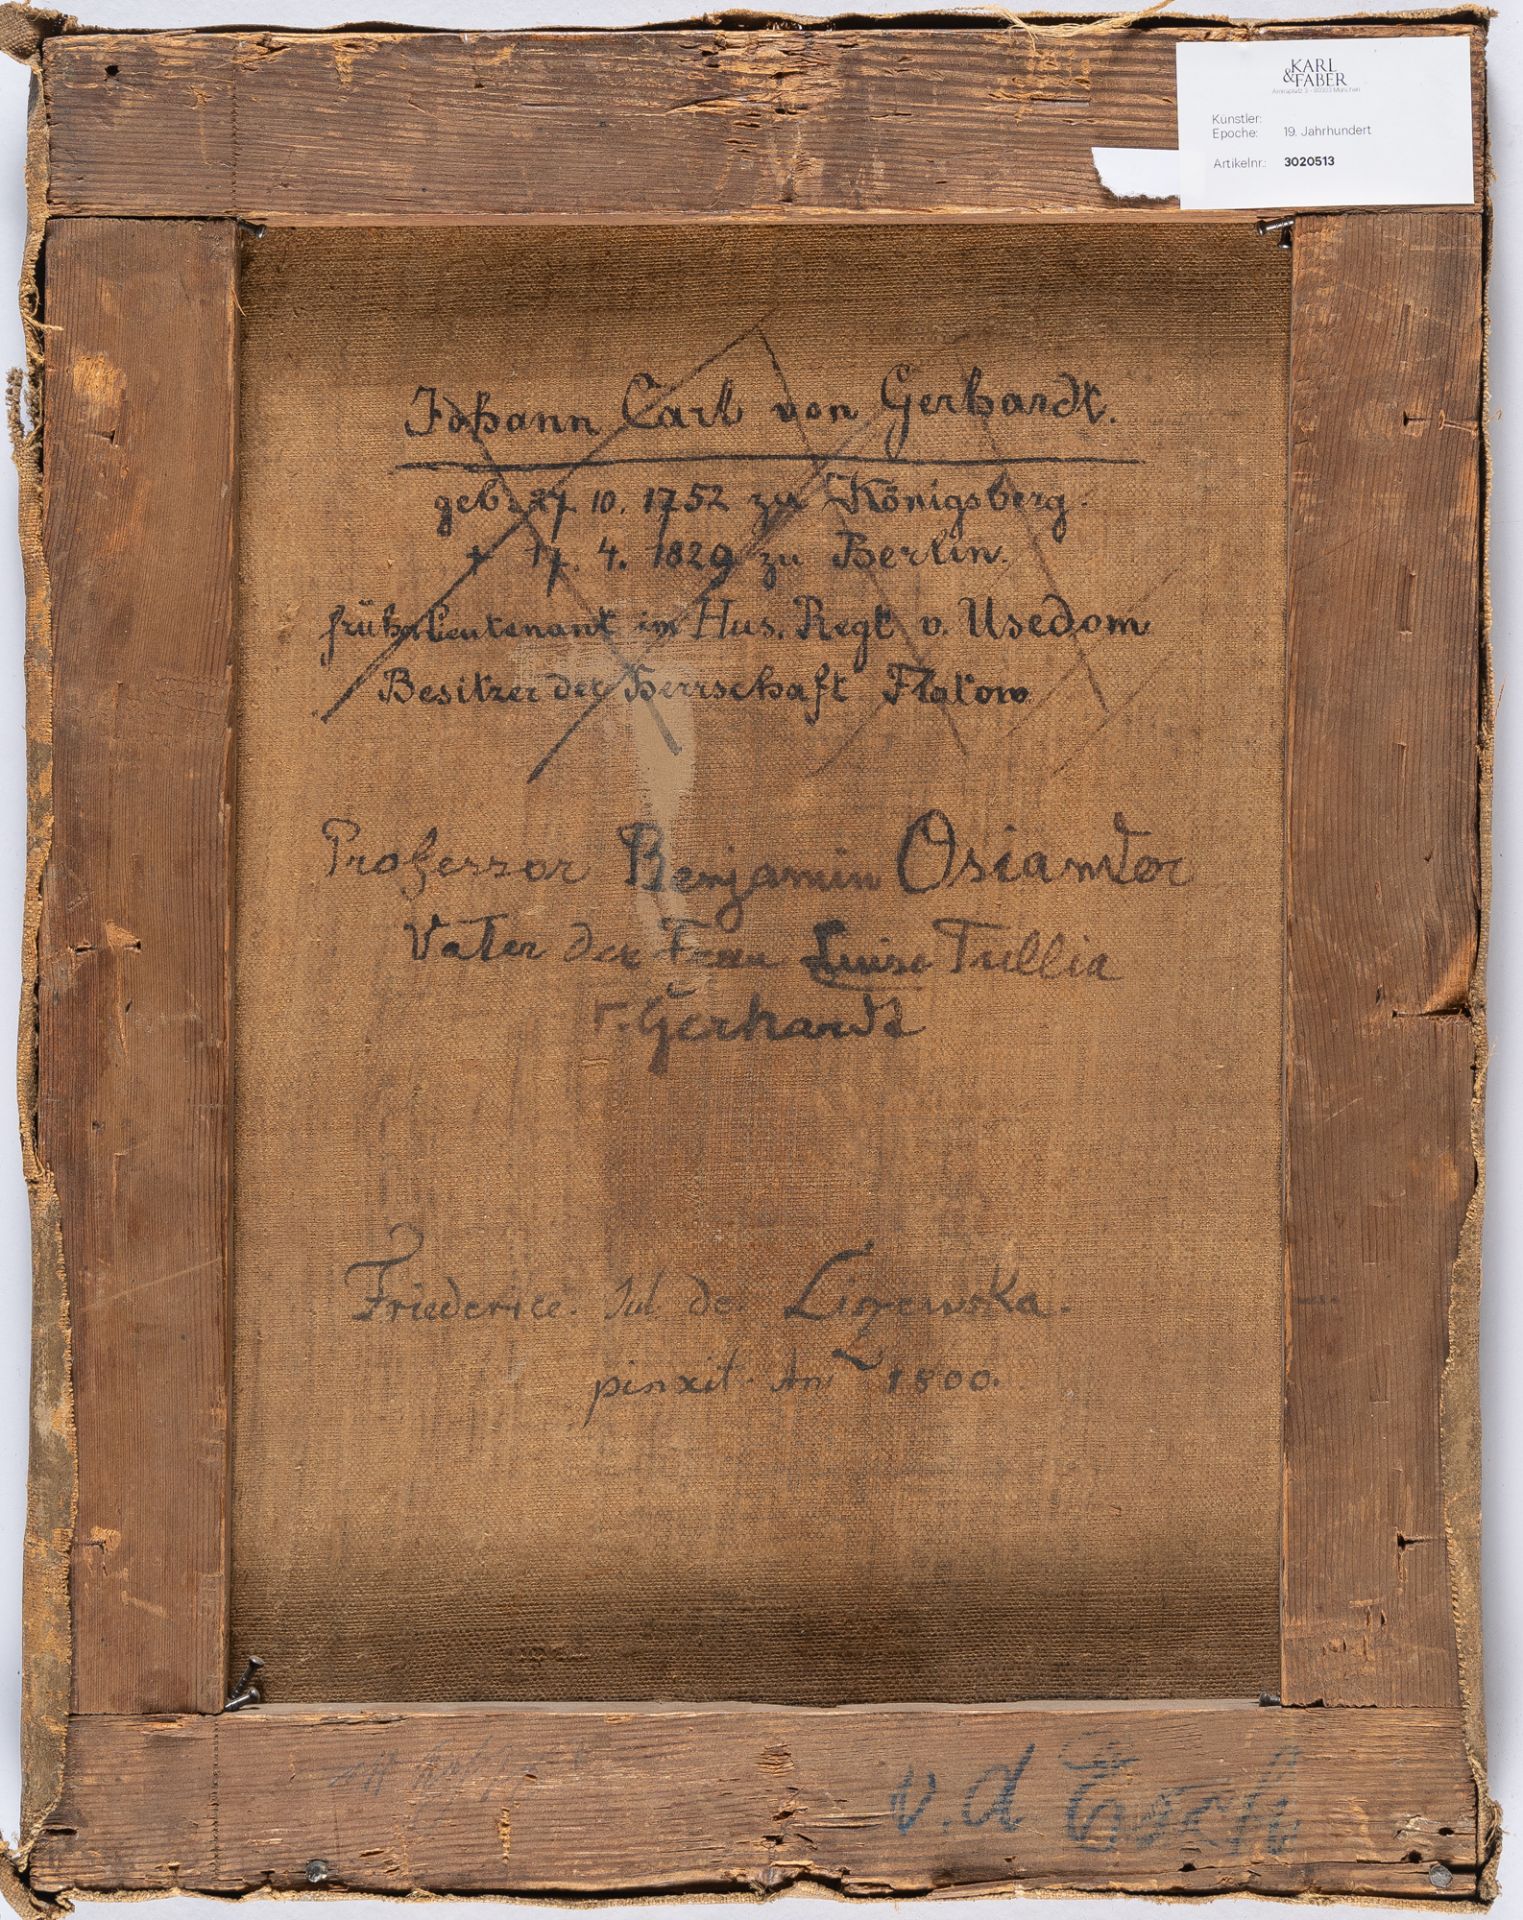 KARL
&FABER
Amiraplatz 3 - 80333 München
Künstler:
Epoche: 19. Jahrhundert
Artikelnr.: 3020513
Johann Carl von Gerhardt.
geb. 27 10. 1752 zu Königsberg.
† 17. 4. 1829 zu Berlin.
früher Lieutenant im Hus. Regt v. Usedom
Besitzer der Herrschaft Flatow
Professor Benjamin Osiander
Vater der Frau Luise Tullia
v. Gerhardt
Friederice. Jul. de. Liszewska.
pinxit. An 1800.
v. d Esch